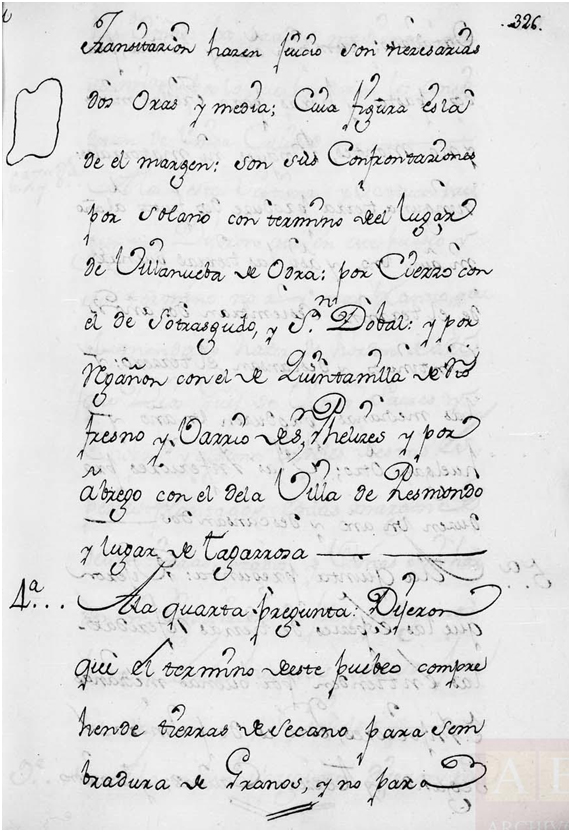 326.
transitarion haren juicio son neresarias
dos Oras y media; Cuia figura es la
de el margen: son sus Confrontariones
por solano con termino del lugar
de Villanueba de Odra: por Cierzo con
el de Sotrasgudo, y S.n Dobal: y por
Rgañon con el de Quintanilla de Rio
fresno y Varrio de S.n Phelizes y por
abrego con el dela Villa de Resmondo
y lugar de tagarrosa
4.a... Ala quarta pregunta: Dijeron
que el termino deste pueblo compre
hende tierras de secano para sem
bradura de Granos, y no para